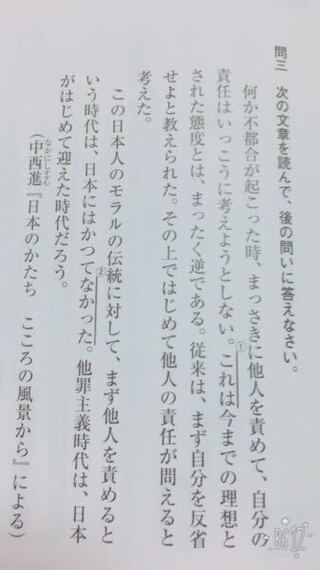 問三 次の文章を読んで、後の問いに答えなさい。
何か不都合が起こった時、まっさきに他人を責めて、自分の
責任はいっこうに考えようとしない。①これは今までの理想と
された態度とは、まったく逆である。従来は、まず自分を反省
せよと教えられた。その上ではじめて他人の責任が問えると
考えた。
この日本人のモラルの伝統に対して、まず他人を責めると
いう時代は、②日本にはかつてなかった。他罪主義時代は、日本
がはじめて迎えた時代だろう。
(中西進『日本のかたち こころの風景から』による)
なかにしすすむ